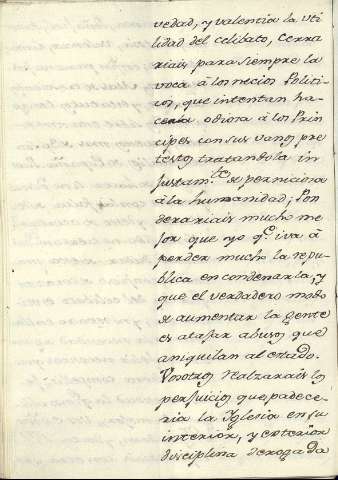 vedad, y valentia la uti
lidad del celibato, cerra
riais para siempre la
voca à los necios Politi
cos, que intentan ha-
cerla odiosa à los Prin
cipes con sus vanos pre
testos tratandola in
justam.te de perniciosa
à la humanidad; Pon
derariais mucho me
jor que yo q.e iva à
perder mucho la repu-
blica en condenarla, y
que el verdadero modo
de aumentar la gente
es atajar abusos que
aniquilan al estado.
Vosotros realzarais los
perjuicios que padece-
ria la Iglesia en su
interior, y exterior
disciplina derogada